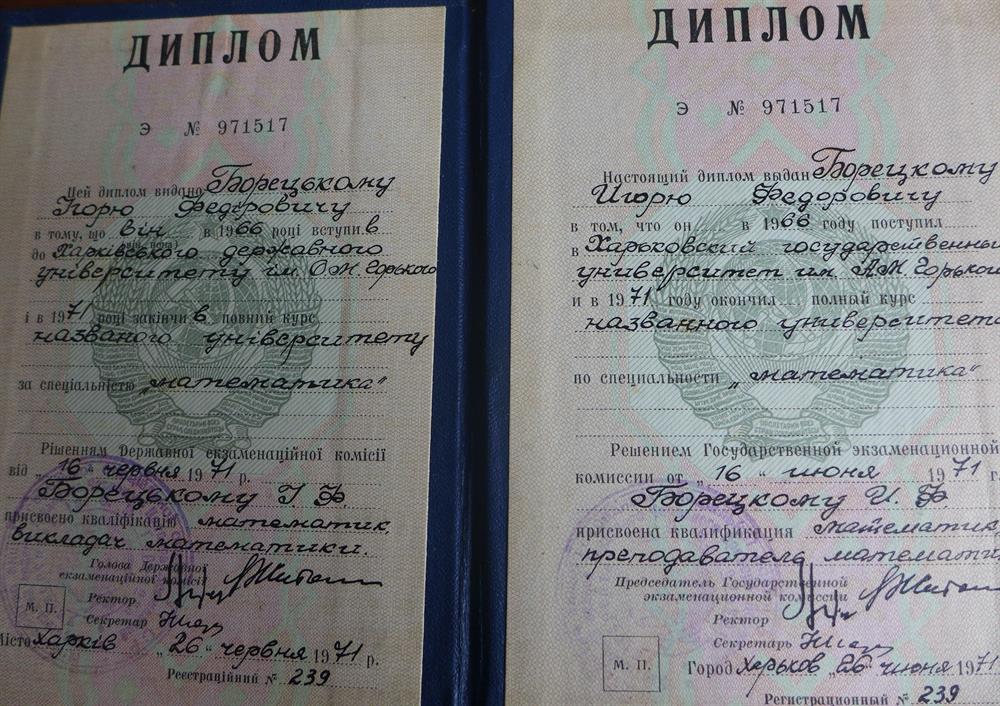 ДИПЛОМ
Э № 971517
Цей диплом видано Борецькому
Ігорю Федоровичу
в тому, що він в 1966 році вступив
до Харківського державного
університету ім. О.М. Горького
і в 1971 році закінчив повний курс
названого університету
за спеціальністю „математика"
Рішенням Державної екзаменаційної комісії
від „16" червня 1971 р.
Борецькому І. Ф.
присвоєно кваліфікацію математик,
викладач математики.
Голова Державної
екзаменаційної комісії
Ректор
Секретар
М. П.
Місто Харків „26" червня 1971 р.
Реєстраційний № 239
ДИПЛОМ
Э № 971517
Настоящий диплом выдан Борецкому
Игорю Федоровичу
в том, что он в 1966 году поступил
в Харьковский государственны
университет им. А.М. Горько
и в 1971 году окончил полный курс
названного университета
по специальности „математика"
Решением Государственной экзаменационной
комиссии от „16" июня 1971 г.
Борецкому И. Ф.
присвоена квалификация математик,
преподавателя математи
Председатель Государственной
экзаменационной комиссии
Ректор
Секретарь
М. П.
Город Харьков „26" июня 1971
Регистрационный № 239